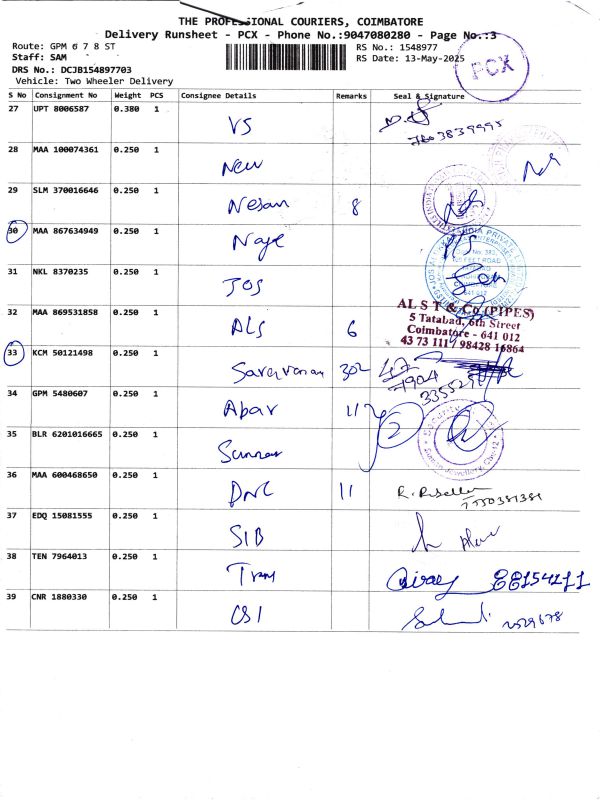 THE PROFESSIONAL COURIERS, COIMBATORE
Delivery Runsheet - PCX - Phone No.:9047080280 - Page No.:3
Route: GPM 6 7 8 ST
RS No.: 1548977
Staff: SAM
RS Date: 13-May-2025
DRS No.: DCJB154897703
Vehicle: Two Wheeler Delivery
PCX
S No Consignment No Weight PCS Consignee Details Remarks Seal & Signature
27 UPT 8006587 0.380 1 VS
28 MAA 100074361 0.250 1 New
29 SLM 370016646 0.250 1 Nesan 8
30 MAA 867634949 0.250 1
31 NKL 8370235 0.250 1 JOS
32 MAA 869531858 0.250 1 ALS 6
AL S T & Co (PIPES)
5 Tatabad, 6th Street
Coimbatore - 641 012
43 73 111 / 98428 16864
33 KCM 50121498 0.250 1 Saravanan 302
34 GPM 5480607 0.250 1
35 BLR 6201016665 0.250 1
36 MAA 600468650 0.250 1 DNC 11
37 EDQ 15081555 0.250 1 SIB
38 TEN 7964013 0.250 1
39 CNR 1880330 0.250 1 CSI